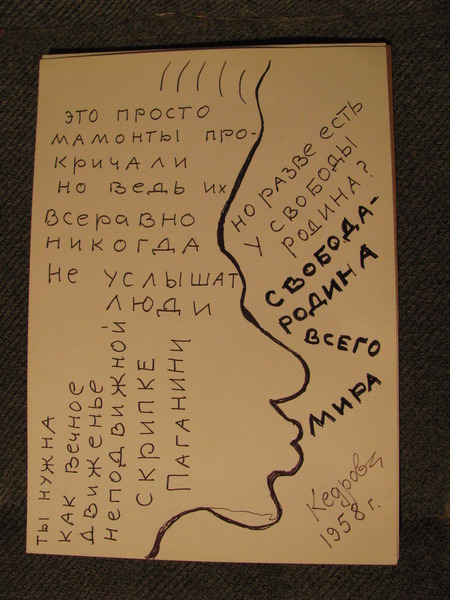 ЭТО ПРОСТО
МАМОНТЫ ПРО-
КРИЧАЛИ
НО ВЕДЬ ИХ
ВСЕРАВНО
НИКОГДА
НЕ УСЛЫШАТ
ЛЮДИ
ТЫ НУЖНА
КАК ВЕЧНОЕ
ДВИЖЕНЬЕ
НЕПОДВИЖНОЙ
СКРИПКЕ
ПАГАНИНИ
НО РАЗВЕ ЕСТЬ
У СВОБОДЫ
РОДИНА?
СВОБОДА-
РОДИНА
ВСЕГО
МИРА
Кедров
1958 г.